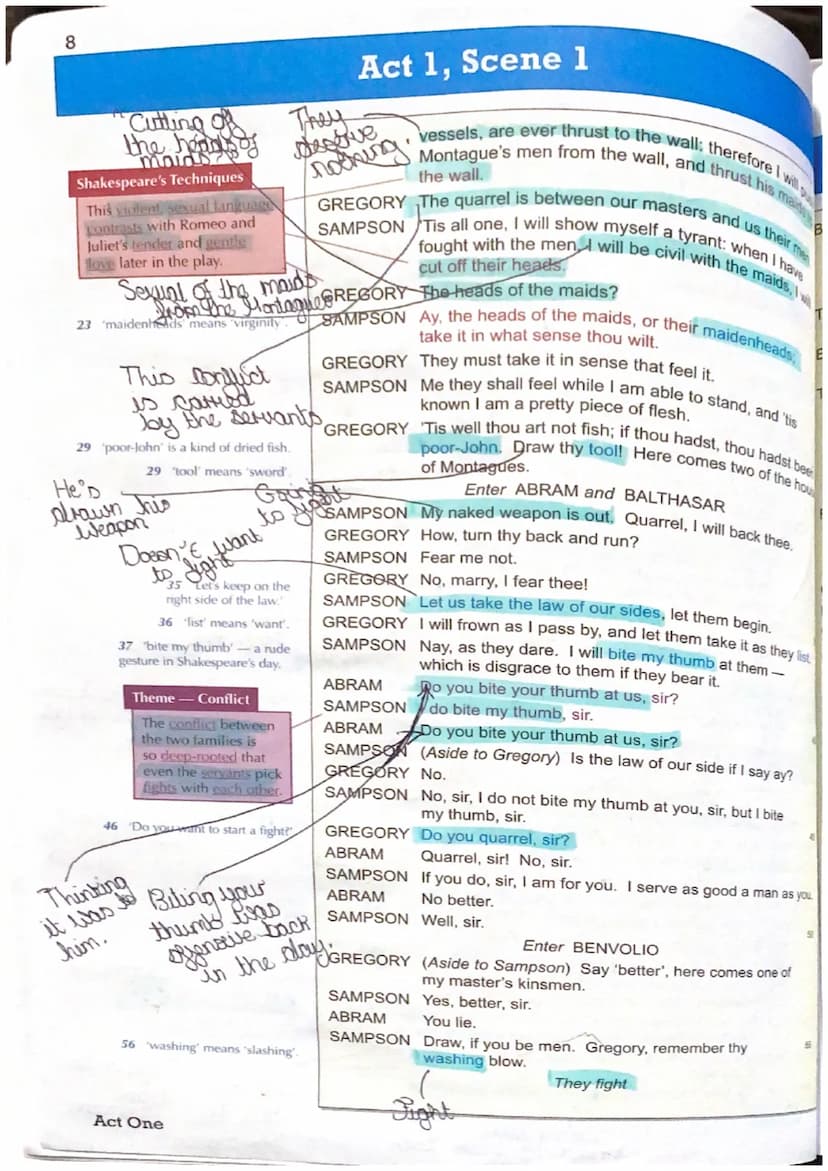 8
Act 1, Scene 1
"Cutting off
the heads of
maids"
They
deserve
nothing.
Shakespeare's Techniques
This violent, sexual language
contrasts with Romeo and
Juliet's tender and gentle
love later in the play.
Sexual of the maids
from the Montagues
23 'maidenheads' means 'virginity'.
This conflict
is carried
by the servants
29 'poor-John' is a kind of dried fish.
29 'tool' means 'sword'.
He's
drawn his
weapon
Going
to fight
Doesn't want
to fight
35 'Let's keep on the
right side of the law.'
36 'list' means 'want'.
37 'bite my thumb' — a rude
gesture in Shakespeare's day.
Theme — Conflict
The conflict between
the two families is
so deep-rooted that
even the servants pick
fights with each other.
46 'Do you want to start a fight?'
Thinking
it was to
him.
Biting your
thumb was
offensive back
in the day.
56 'washing' means 'slashing'.
vessels, are ever thrust to the wall; therefore I will
Montague's men from the wall, and thrust his maids
the wall.
GREGORY The quarrel is between our masters and us their men
SAMPSON 'Tis all one, I will show myself a tyrant: when I have
fought with the men, I will be civil with the maids, I will
cut off their heads.
GREGORY The heads of the maids?
SAMPSON Ay, the heads of the maids, or their maidenheads;
take it in what sense thou wilt.
GREGORY They must take it in sense that feel it.
SAMPSON Me they shall feel while I am able to stand, and 'tis
known I am a pretty piece of flesh.
GREGORY 'Tis well thou art not fish; if thou hadst, thou hadst been
poor-John. Draw thy tool! Here comes two of the
of Montagues.
Enter ABRAM and BALTHASAR
SAMPSON My naked weapon is out. Quarrel, I will back thee.
GREGORY How, turn thy back and run?
SAMPSON Fear me not.
GREGORY No, marry, I fear thee!
SAMPSON Let us take the law of our sides, let them begin.
GREGORY I will frown as I pass by, and let them take it as they list.
SAMPSON Nay, as they dare. I will bite my thumb at them —
which is disgrace to them if they bear it.
ABRAM Do you bite your thumb at us, sir?
SAMPSON I do bite my thumb, sir.
ABRAM Do you bite your thumb at us, sir?
SAMPSON (Aside to Gregory) Is the law of our side if I say ay?
GREGORY No.
SAMPSON No, sir, I do not bite my thumb at you, sir, but I bite
my thumb, sir.
GREGORY Do you quarrel, sir?
45
ABRAM Quarrel, sir! No, sir.
SAMPSON If you do, sir, I am for you. I serve as good a man as you.
ABRAM No better.
SAMPSON Well, sir.
50
Enter BENVOLIO
GREGORY (Aside to Sampson) Say 'better', here comes one of
my master's kinsmen.
SAMPSON Yes, better, sir.
ABRAM You lie.
SAMPSON Draw, if you be men. Gregory, remember thy
55
washing blow.
They fight
Fight
Act One